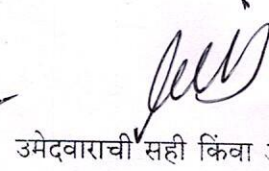 उमेदवाराची सही किंवा